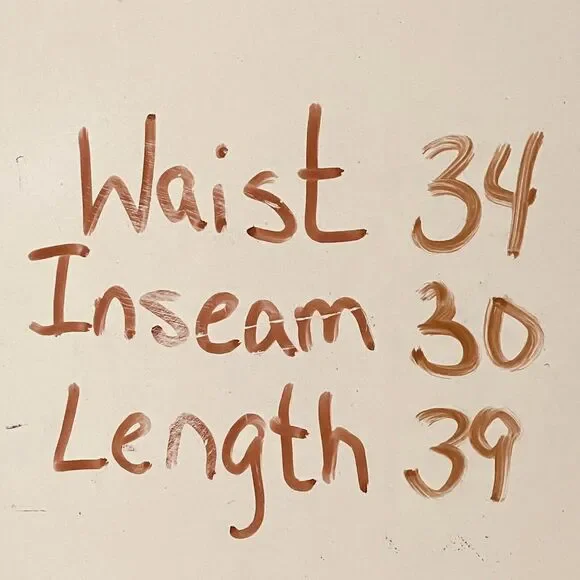 Waist 34
Inseam 30
Length 39